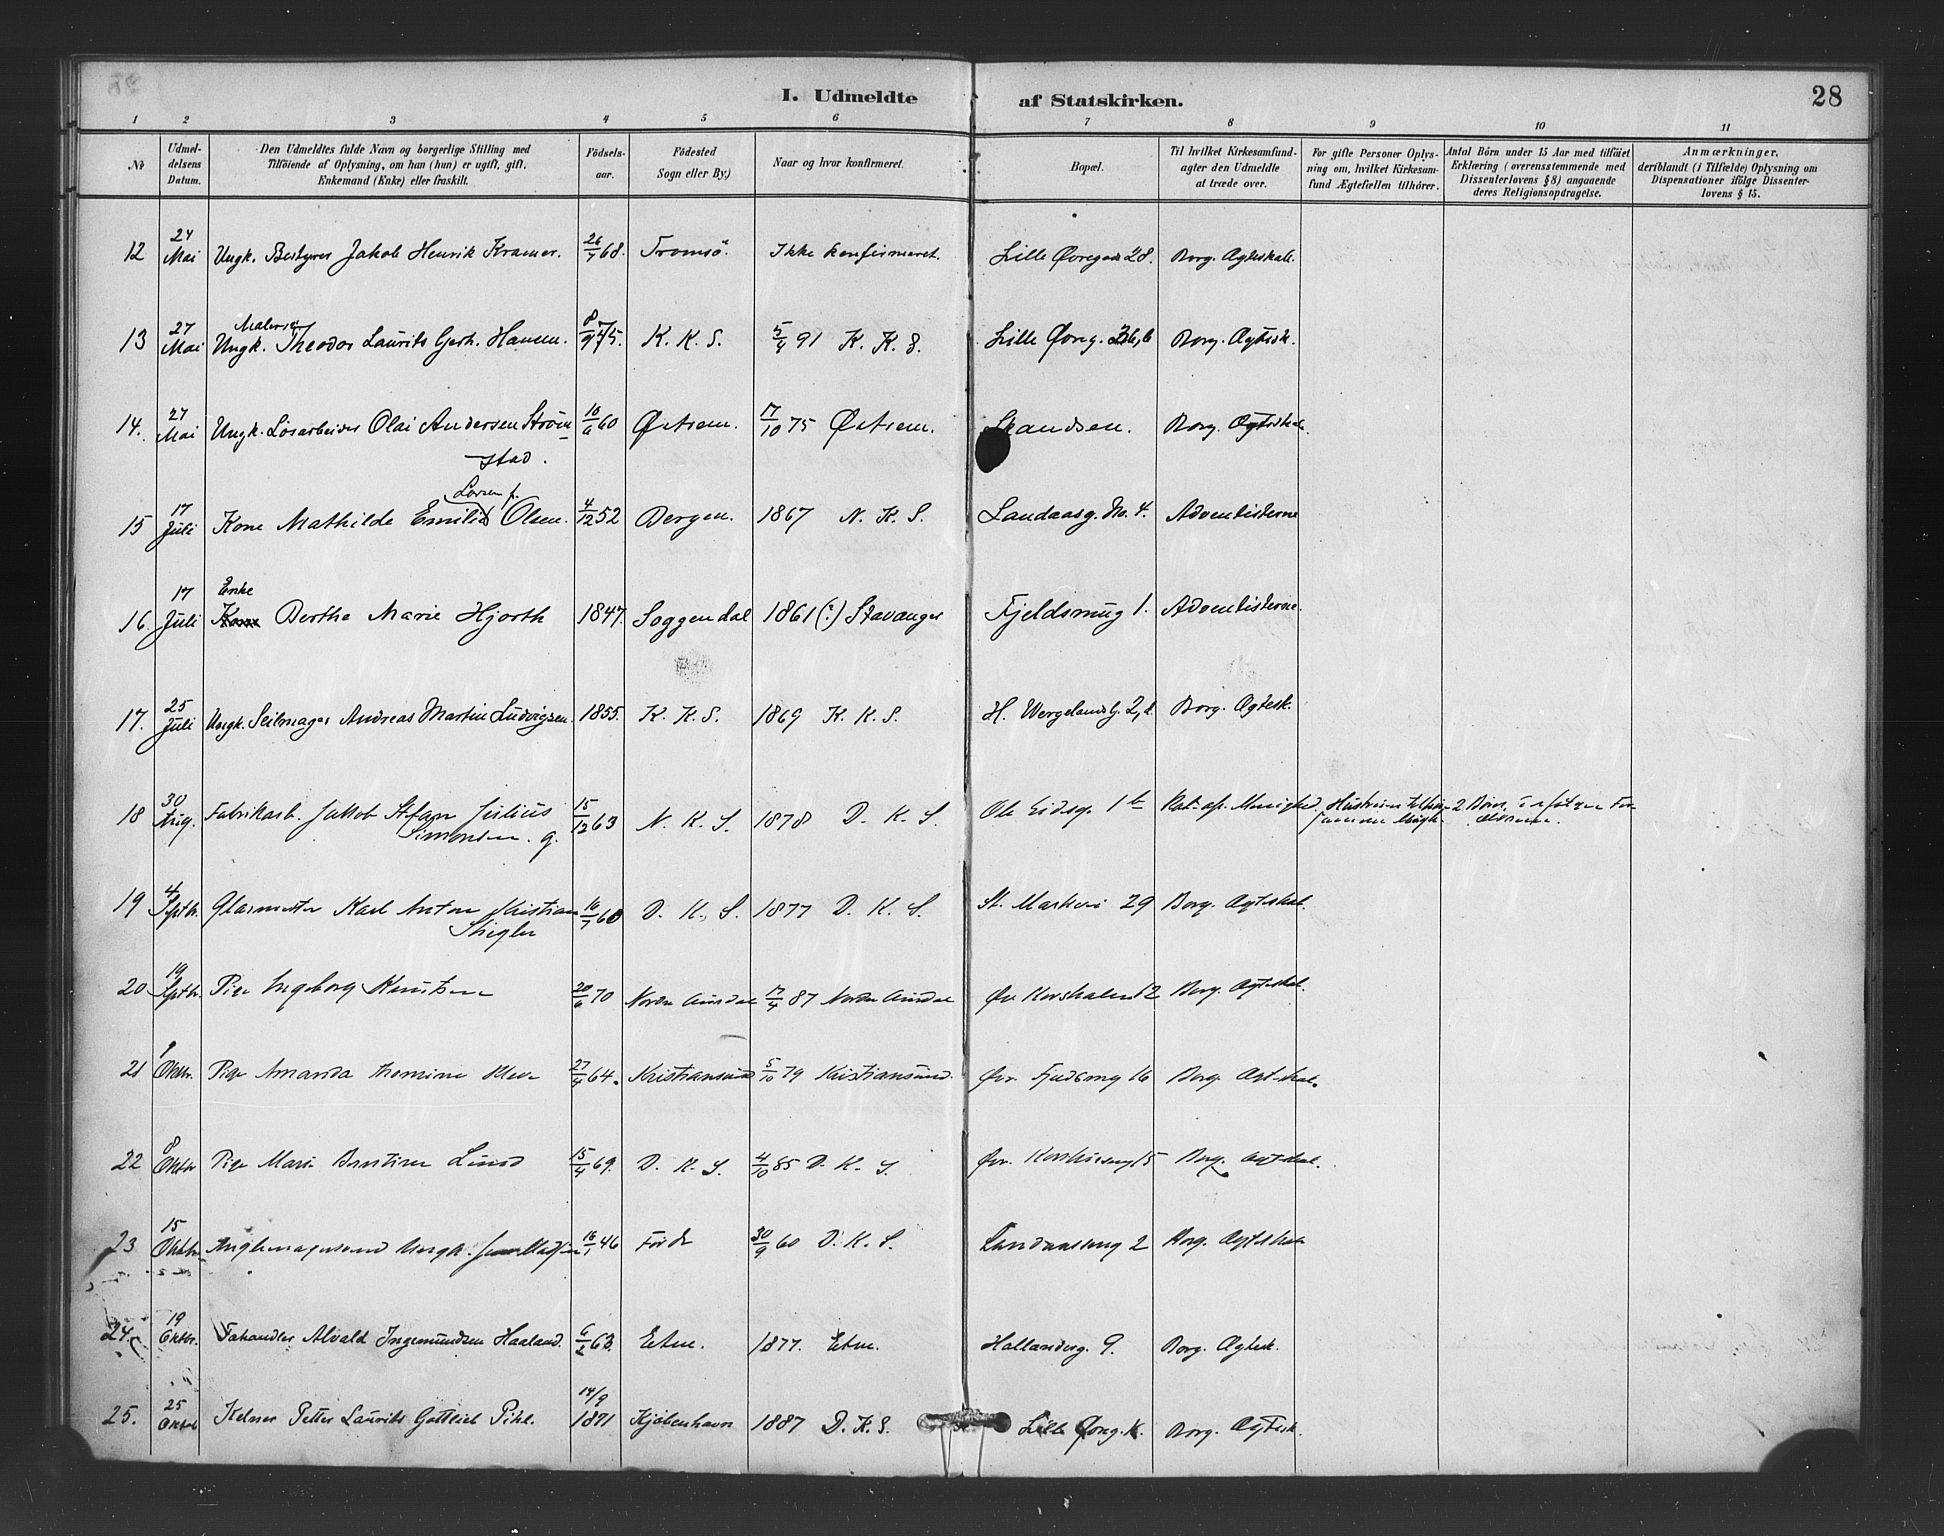 I. Udmeldte af Statskirken. 28
1 2 3 4 5 6 7 8 9 10 11
No
Udmel-
delsens
Datum.
Den Udmeldtes fulde Navn og borgerlige Stilling med
Tilföiende af Oplysning, om han (hun) er ugift, gift,
Enkemand (Enke) eller fraskilt.
Födsels-
aar.
Födested
Sogn eller By.)
Naar og hvor konfirmeret.
Bopæl.
Til hvilket Kirkesamfund
agter den Udmeldte
at træde over.
For gifte Personer Oplys-
ning om, hvilket Kirkesam-
fund Ægtefællen tilhörer.
Antal Börn under 15 Aar med tilföiet
Erklæring (overensstemmende med
Dissenterlovens § 8) angaaende
deres Religionsopdragelse.
Anmærkninger,
deriblandt (i Tilfælde) Oplysning om
Dispensationer ifölge Dissenter-
lovens § 15.
12 24 Mai Ungk. Bestyrer Jakob Henrik Kramer. 26/7 68. Tromsö. Ikke konfirmeret. Lille Øvregade 28. Borg. Ægteskab.
Maler
13 27 Mai Ungk. Theodor Laurits Gerh. Hansen. 8/9 75. K. K. S. 5/4 91 K. K. S. Lille Øvreg. 26,b Borg. Ægtesk.
14. 27 Mai Ungk. Lösarbeider Olai Andersen Ström- 10/6 60 Østrem. 17/10 75 Østrem. Skandsen. Borg. Ægteskab.
stad.
Larsen f.
15 17 Juli Kone Mathilde Emilie Olsen. 4/12 52 Bergen. 1867 N. K. S. Landaasg. No. 4. Adventisterne
Enke
16. 17 Juli Kone Berthe Marie Hjorth 1847. Soggendal 1861(?) Stavanger Fjeldsmug 1. Adventisterne.
17. 25 Juli Ungk. Seilmager Andreas Martin Ludvigsen. 1855. K. K. S. 1869 K. K. S. H. Wergelandsg. 2,d. Borg. Ægtesk.
18 30 Aug. Fabrikarb. Jakob Stefan Julius 15/12 63 N. K. S. 1878 D. K. S. Ole 1 b Kat. ap. Menighed. Hustruen 2 Börn
Simonsen. g. samme Mengh.
19 4 Septb. Glarmester Karl Anton Kristian 16/7 60 D. K. S. 1877 D. K. S. St. Markev 29 Borg. Ægteskab.
Stiegler
20 19 Septb. Pige Ingeborg Knutsen 20/6 70 Nordre Aurdal 17/4 87 Nordre Aurdal Øv. Korskalen 12 Borg. Ægteskab.
21 1 Oktbr. Pige Amanda Thomine 27/4 64. Kristiansund 5/10 79 Kristiansund. Øvr. 16 Borg. Ægteskab.
22 8 Oktbr Pige Marie Lund 15/4 69. D. K. S. 4/10 85 D. K. S. Øvr. 15 Borg. Ægteskab.
23 15 Oktbr. Ungk. 16/1 46 Förde 30/9 60 D. K. S. 2 Borg. Ægteskab
24. 19 Oktbr. Alvald Ingemundsen Haaland. 6/6 63. Etne. 1877. Etne. Hollanderg. 9. Borg. Ægtesk.
25. 25 Oktob Kelner Petter Laurits Gottlieb Pihl. 14/9 1871 Kjöbenhavn 1887 D. K. S. Lille Øvreg. K. Borg. Ægtesk.